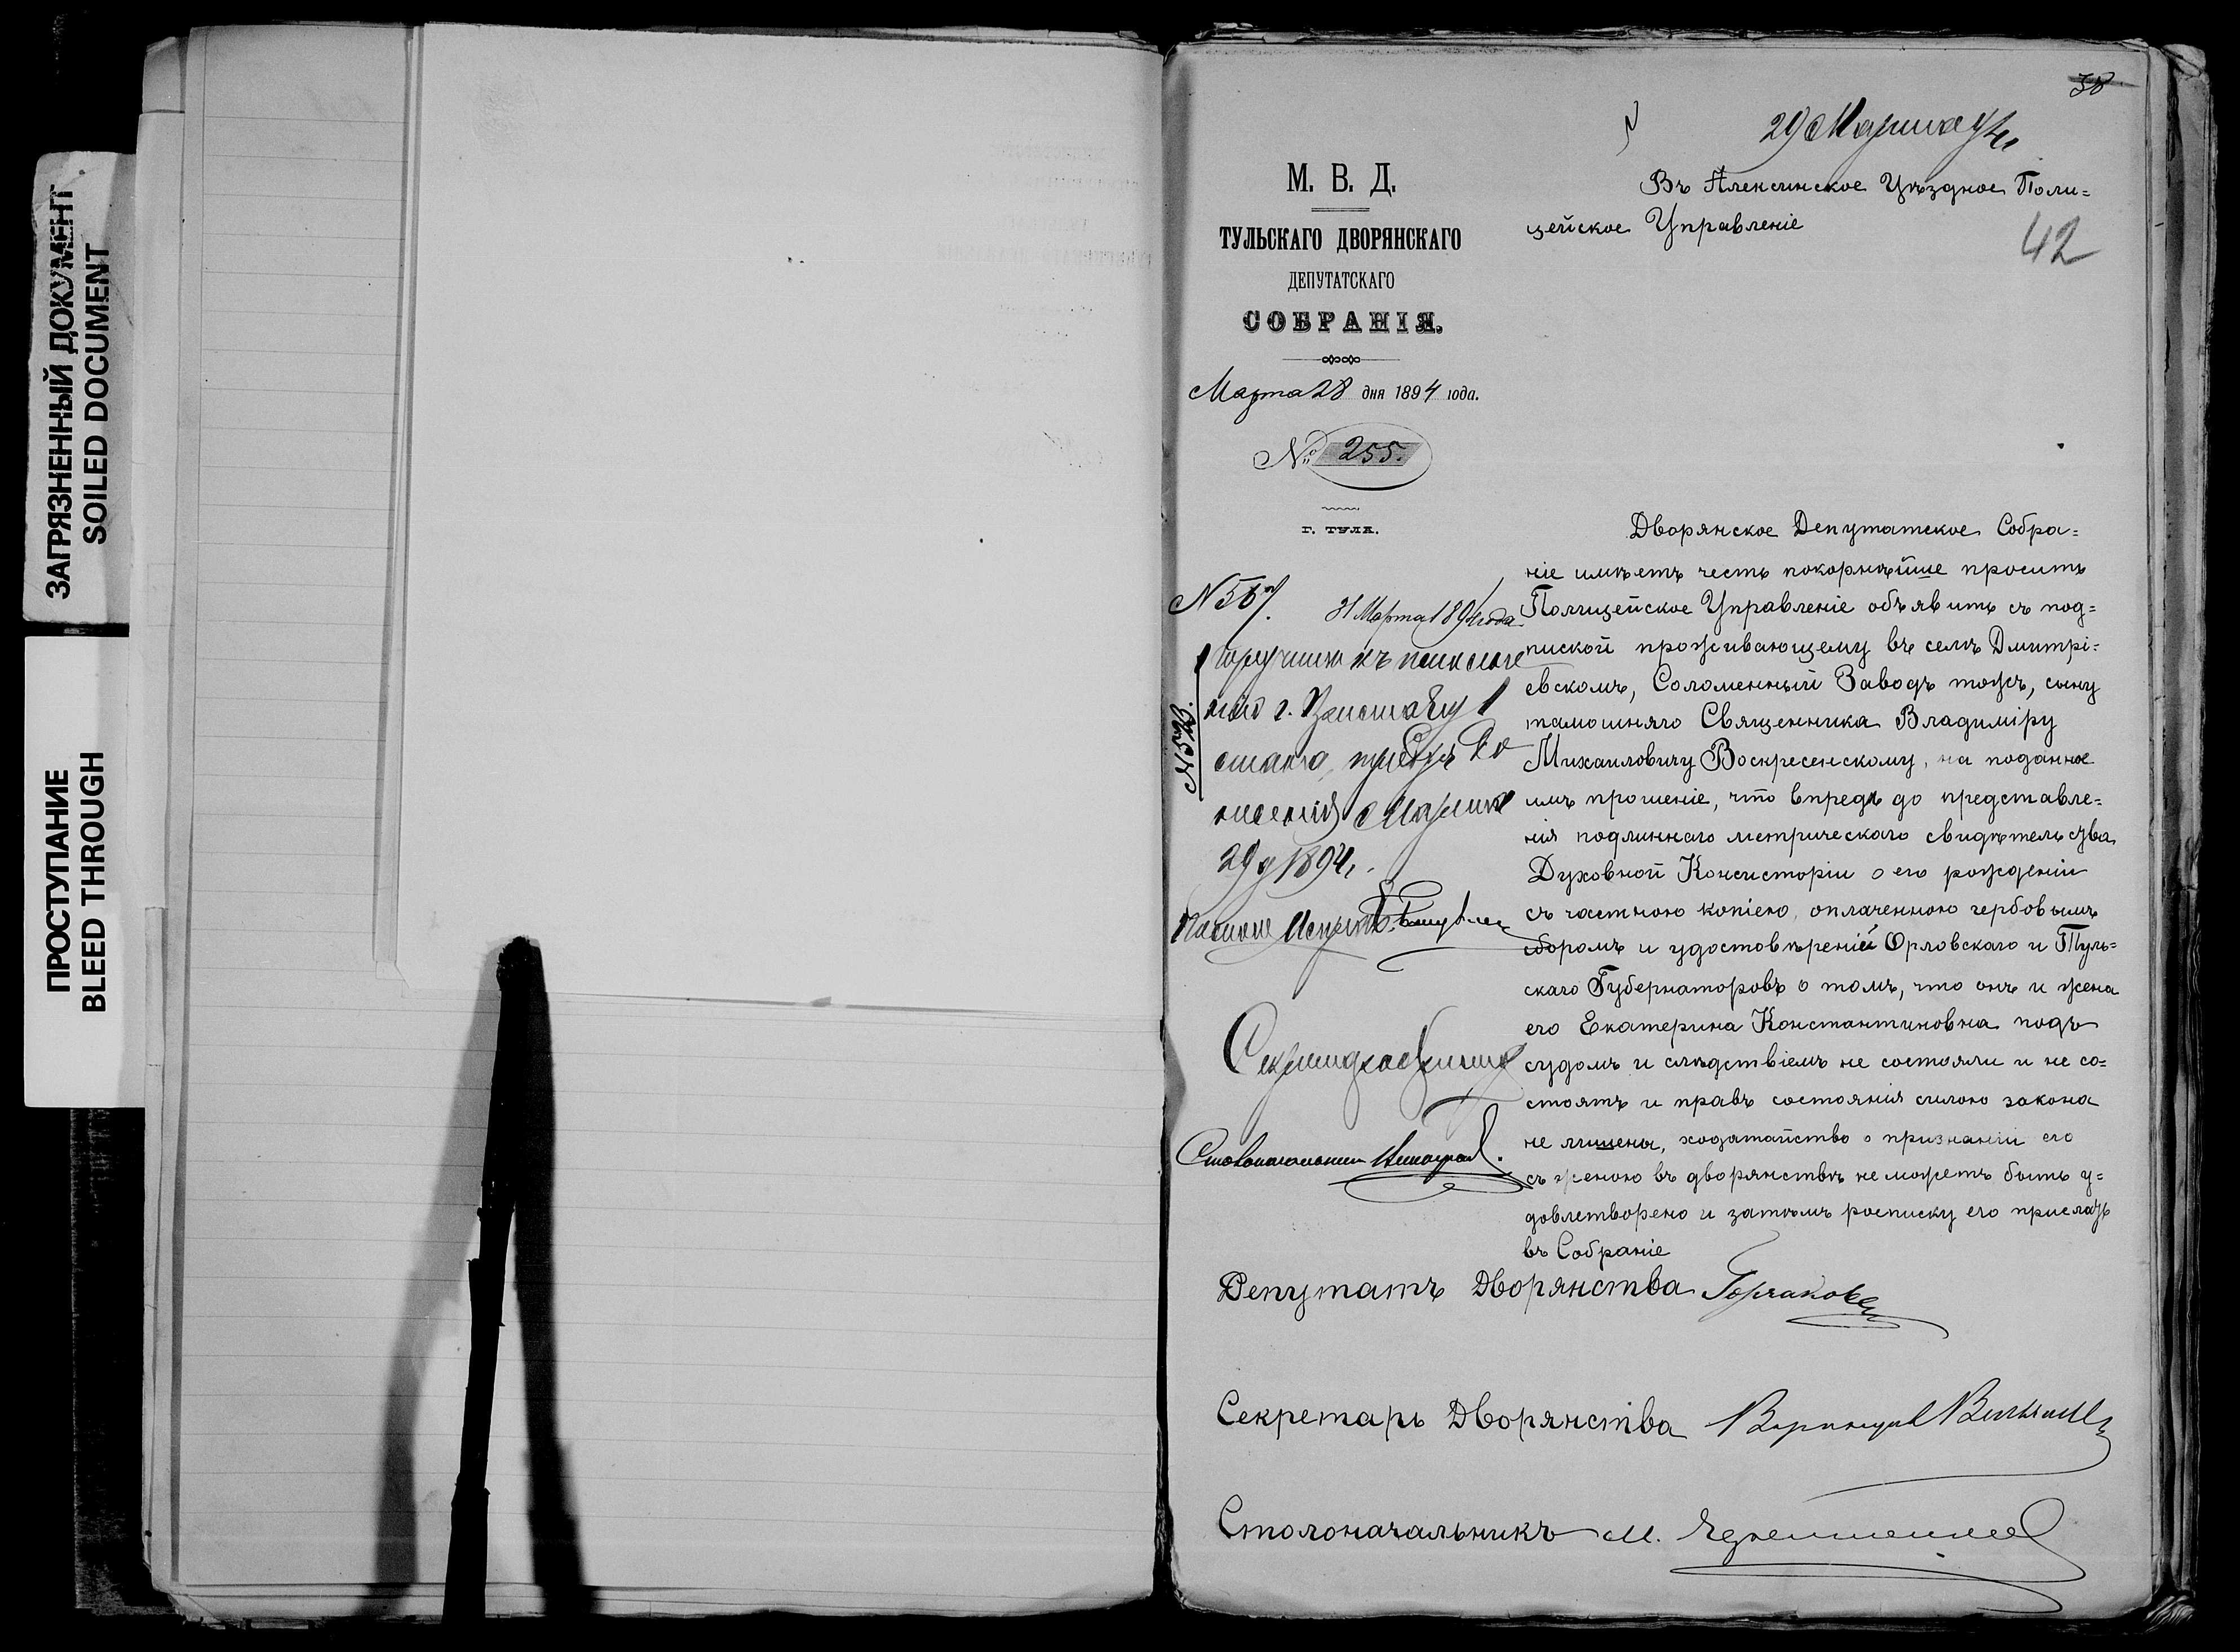 ЗАГРЯЗНЕННЫЙ ДОКУМЕНТ
SOILED DOCUMENT
ПРОСТУПАНИЕ
BLEED THROUGH
38
29 Марта 94
42
М. В. Д.
ТУЛЬСКАГО ДВОРЯНСКАГО
ДЕПУТАТСКАГО
СОБРАНІЯ.
Марта 28 дня 1894 года.
№ 255.
Г. ТУЛА.
Въ Алексинское Уѣздное Поли=
цейское Управленіе
Дворянское Депутатское Собра=
ніе имѣетъ честь покорнѣйше просить
Полицейское Управленіе объявить съ под=
пиской проживающему въ селѣ Дмитрі=
евскомъ, Соломенный Заводъ тожъ, сыну
тамошняго Священника Владиміру
Михаиловичу Воскресенскому, на поданное
имъ прошеніе, что впредь до представле=
нія подлиннаго метрическаго свидѣтельства
Духовной Консисторіи о его рожденіи
съ частною копіею, оплаченною гербовымъ
сборомъ и удостовѣреній Орловскаго и Туль=
скаго Губернаторовъ о томъ, что онъ и жена
его Екатерина Константиновна подъ
судомъ и слѣдствіемъ не состояли и не со=
стоятъ и правъ состоянія силою закона
не лишены, ходатайство о признаніи его
съ женою въ дворянствѣ не можетъ быть у=
довлетворено и затѣмъ росписку его прислать
въ Собраніе
Депутатъ Дворянства Горчаковъ
Секретарь Дворянства
Столоначальникъ М.
31 Марта 1894 года
г. Приставу 1
стана,
Марта
29 д 1894
№ 528.